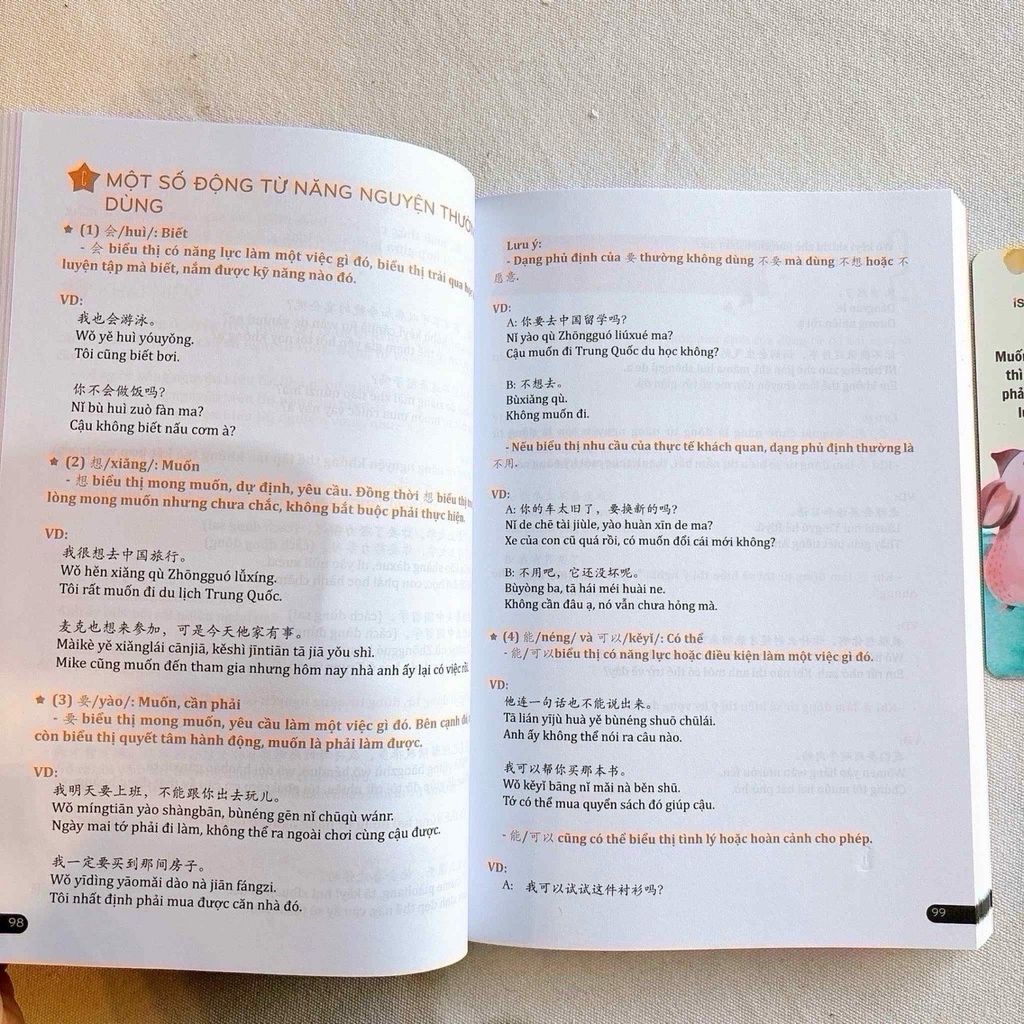 C
MỘT SỐ ĐỘNG TỪ NĂNG NGUYỆN
DÙNG
★ (1) 会/huì/: Biết
- 会 biểu thị có năng lực làm một việc gì đó, biểu thị trải qua học
luyện tập mà biết, nắm được kỹ năng nào đó.
VD:
我也会游泳。
Wǒ yě huì yóuyǒng.
Tôi cũng biết bơi.
你不会做饭吗?
Nǐ bù huì zuò fàn ma?
Cậu không biết nấu cơm à?
★ (2) 想/xiǎng/: Muốn
- 想 biểu thị mong muốn, dự định, yêu cầu. Đồng thời 想 biểu thị
lòng mong muốn nhưng chưa chắc, không bắt buộc phải thực hiện.
VD:
我很想去中国旅行。
Wǒ hěn xiǎng qù Zhōngguó lǚxíng.
Tôi rất muốn đi du lịch Trung Quốc.
麦克也想来参加，可是今天他家有事。
Màikè yě xiǎnglái cānjiā, kěshì jīntiān tā jiā yǒu shì.
Mike cũng muốn đến tham gia nhưng hôm nay nhà anh ấy lại có việc rồi.
★ (3) 要/yào/: Muốn, cần phải
- 要 biểu thị mong muốn, yêu cầu làm một việc gì đó. Bên cạnh đó
còn biểu thị quyết tâm hành động, muốn là phải làm được.
VD:
我明天要上班，不能跟你出去玩儿。
Wǒ míngtiān yào shàngbān, bùnéng gēn nǐ chūqù wánr.
Ngày mai tớ phải đi làm, không thể ra ngoài chơi cùng cậu được.
我一定要买到那间房子。
Wǒ yīdìng yāomǎi dào nà jiān fángzi.
Tôi nhất định phải mua được căn nhà đó.
98
Lưu ý:
- Dạng phủ định của 要 thường không dùng 不要 mà dùng 不想 hoặc 不
愿意.
VD:
A: 你要去中国留学吗?
Nǐ yào qù Zhōngguó liúxué ma?
Cậu muốn đi Trung Quốc du học không?
B: 不想去。
Bùxiǎng qù.
Không muốn đi.
- Nếu biểu thị nhu cầu của thực tế khách quan, dạng phủ định thường là
不用.
VD:
A: 你的车太旧了，要换新的吗?
Nǐ de chē tài jiùle, yào huàn xīn de ma?
Xe của con cũ quá rồi, có muốn đổi cái mới không?
B: 不用吧，它还没坏呢。
Bùyòng ba, tā hái méi huài ne.
Không cần đâu ạ, nó vẫn chưa hỏng mà.
★ (4) 能/néng/ và 可以/kěyǐ/: Có thể
- 能/可以biểu thị có năng lực hoặc điều kiện làm một việc gì đó.
VD:
他连一句话也不能说出来。
Tā lián yījù huà yě bùnéng shuō chūlái.
Anh ấy không thể nói ra câu nào.
我可以帮你买那本书。
Wǒ kěyǐ bāng nǐ mǎi nà běn shū.
Tớ có thể mua quyển sách đó giúp cậu.
- 能/可以 cũng có thể biểu thị tình lý hoặc hoàn cảnh cho phép.
VD:
A: 我可以试试这件衬衫吗?
99
Muốn
thì
phải